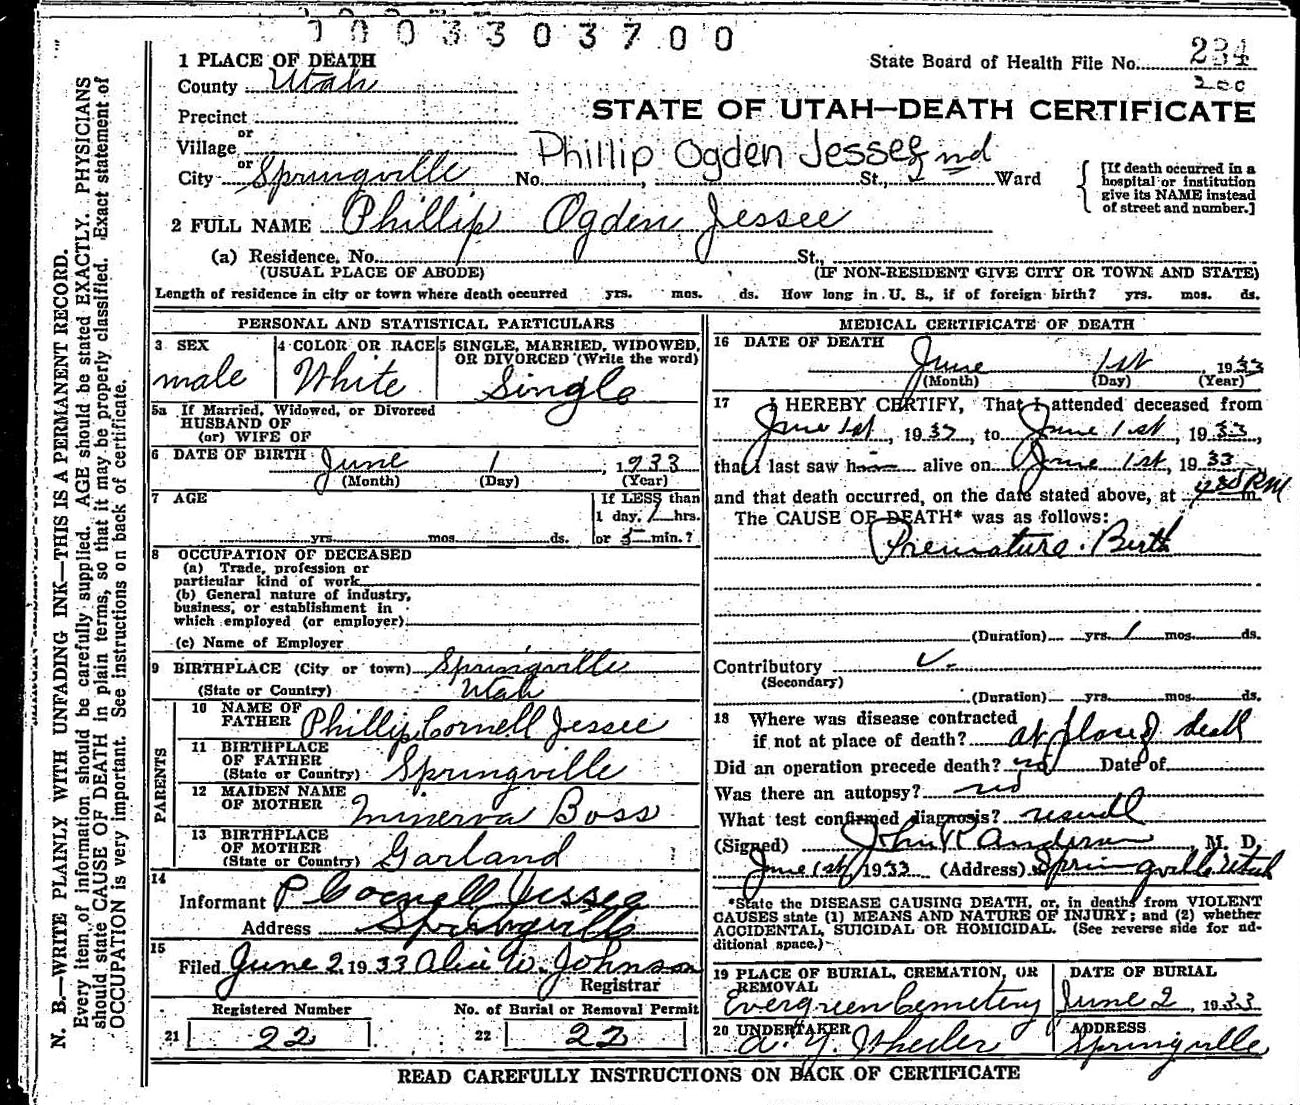 1003303700
1 PLACE OF DEATH
State Board of Health File No. 234
County Utah
200
STATE OF UTAH—DEATH CERTIFICATE
Precinct
or
Village
Phillip Ogden Jessee
or
City Springville No. , St., 2nd Ward
[If death occurred in a hospital or institution give its NAME instead of street and number.]
2 FULL NAME Phillip Ogden Jessee
(a) Residence. No. St.,
(USUAL PLACE OF ABODE) (IF NON-RESIDENT GIVE CITY OR TOWN AND STATE)
Length of residence in city or town where death occurred yrs. mos. ds. How long in U. S., if of foreign birth? yrs. mos. ds.
PERSONAL AND STATISTICAL PARTICULARS
3 SEX
male
4 COLOR OR RACE
White
5 SINGLE, MARRIED, WIDOWED,
OR DIVORCED (Write the word)
Single
5a If Married, Widowed, or Divorced
HUSBAND OF
(or) WIFE OF
6 DATE OF BIRTH June 1, 1933
(Month) (Day) (Year)
7 AGE
If LESS than
1 day, 1 hrs.
yrs. mos. ds. or 5 min.?
8 OCCUPATION OF DECEASED
(a) Trade, profession or
particular kind of work
(b) General nature of industry,
business, or establishment in
which employed (or employer)
(c) Name of Employer
9 BIRTHPLACE (City or town) Springville
(State or Country) Utah
PARENTS
10 NAME OF
FATHER Phillip Cornell Jessee
11 BIRTHPLACE
OF FATHER
(State or Country) Springville
12 MAIDEN NAME
OF MOTHER Minerva Boss
13 BIRTHPLACE
OF MOTHER
(State or Country) Garland
14
Informant P Cornell Jessee
Address Springville
15
Filed June 2, 1933 Alice W. Johnson
Registrar
Registered Number
21 22
No. of Burial or Removal Permit
22 22
MEDICAL CERTIFICATE OF DEATH
16 DATE OF DEATH
June 1st, 1933
(Month) (Day) (Year)
17 I HEREBY CERTIFY, That I attended deceased from
June 1st, 1933, to June 1st, 1933,
that I last saw him alive on June 1st, 1933
and that death occurred, on the date stated above, at PM m.
The CAUSE OF DEATH* was as follows:
Premature Birth
(Duration) yrs. 1 mos. ds.
Contributory
(Secondary)
(Duration) yrs. mos. ds.
18 Where was disease contracted
if not at place of death? at place of death
Did an operation precede death? no Date of
Was there an autopsy? no
What test confirmed diagnosis?
(Signed) John R Anderson, M. D.
June 1st, 1933 (Address) Springville Utah
*State the DISEASE CAUSING DEATH, or, in deaths from VIOLENT
CAUSES state (1) MEANS AND NATURE OF INJURY; and (2) whether
ACCIDENTAL, SUICIDAL OR HOMICIDAL. (See reverse side for ad-
ditional space.)
19 PLACE OF BURIAL, CREMATION, OR
REMOVAL
Evergreen Cemetery
DATE OF BURIAL
June 2, 1933
20 UNDERTAKER
A. Y. Wheeler
ADDRESS
Springville
READ CAREFULLY INSTRUCTIONS ON BACK OF CERTIFICATE
N. B.—WRITE PLAINLY WITH UNFADING INK—THIS IS A PERMANENT RECORD.
Every item of information should be carefully supplied. AGE should be stated EXACTLY. PHYSICIANS
should state CAUSE OF DEATH in plain terms, so that it may be properly classified. Exact statement of
OCCUPATION is very important. See instructions on back of certificate.